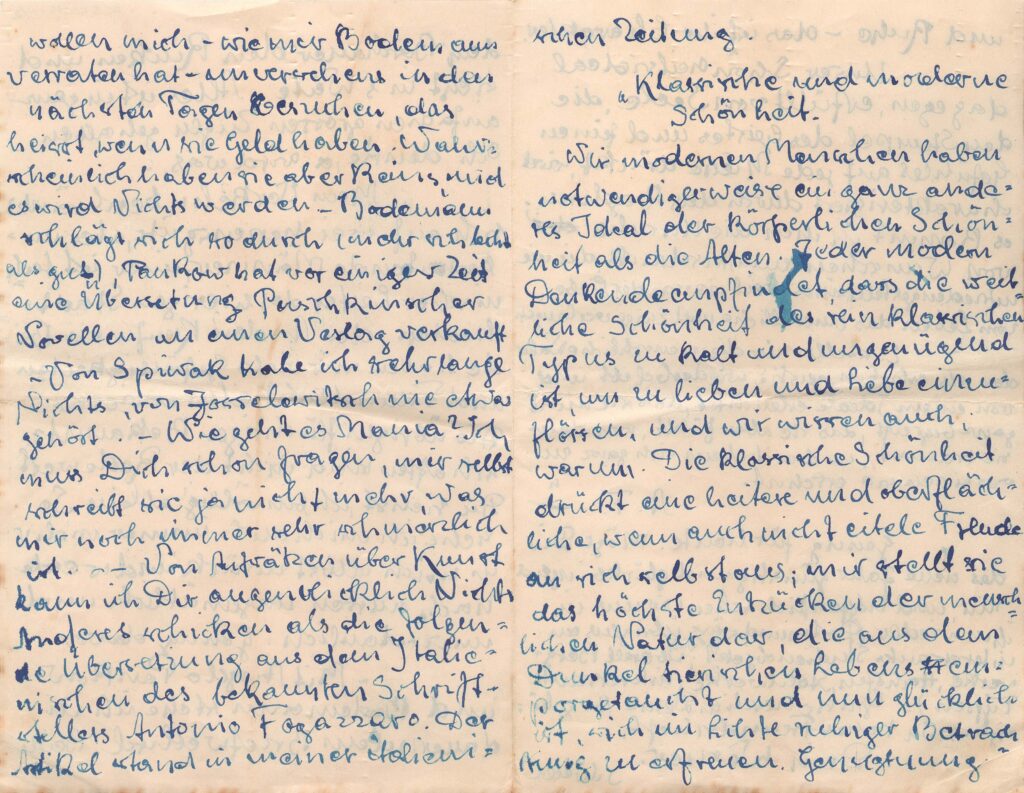 wollen mich – wie mir Bodemann
verraten hat – unversehens in den
nächsten Tagen besuchen, das
heisst, wenn sie Geld haben. Wahr-
scheinlich haben sie aber keins, und
es wird Nichts werden. – Bodemann
schlägt sich so durch (mehr schlecht
als gut), Tankow hat vor einiger Zeit
eine Übersetzung Puschkinscher
Novellen an einen Verlag verkauft
– Von Spiwak habe ich sehr lange
Nichts, von Josselewitsch nie etwas
gehört. – Wie geht es Mania? Ich
muss Dich schon fragen, mir selbst
schreibt sie ja nicht mehr, was
mir noch immer sehr schmerzlich
ist. – – Von Aufsätzen über Kunst
kann ich Dir augenblicklich Nichts
Anderes schicken als die folgen-
de Übersetzung aus dem Italie-
nischen des bekannten Schrift-
stellers Antonio Fogazzaro. Der
Artikel stand in meiner italieni-
schen Zeitung.
„Klassische und moderne
Schönheit.
Wir modernen Menschen haben
notwendigerweise ein ganz ande-
res Ideal der körperlichen Schön-
heit als die Alten. Jeder modern
Denkende empfindet, dass die weib-
liche Schönheit des rein klassischen
Typus zu kalt und ungenügend
ist, um zu lieben und Liebe einzu-
flössen, und wir wissen auch,
warum. Die klassische Schönheit
drückt eine heitere und oberfläch-
liche, wenn auch nicht eitele Freude
an sich selbst aus; mir stellt sie
das höchste Entzücken der mensch-
lichen Natur dar, die aus dem
Dunkel tierischen Lebens em-
porgetaucht und nun glücklich
ist, sich im Lichte ruhiger Betrach-
tung zu erfreuen. Genugtuung